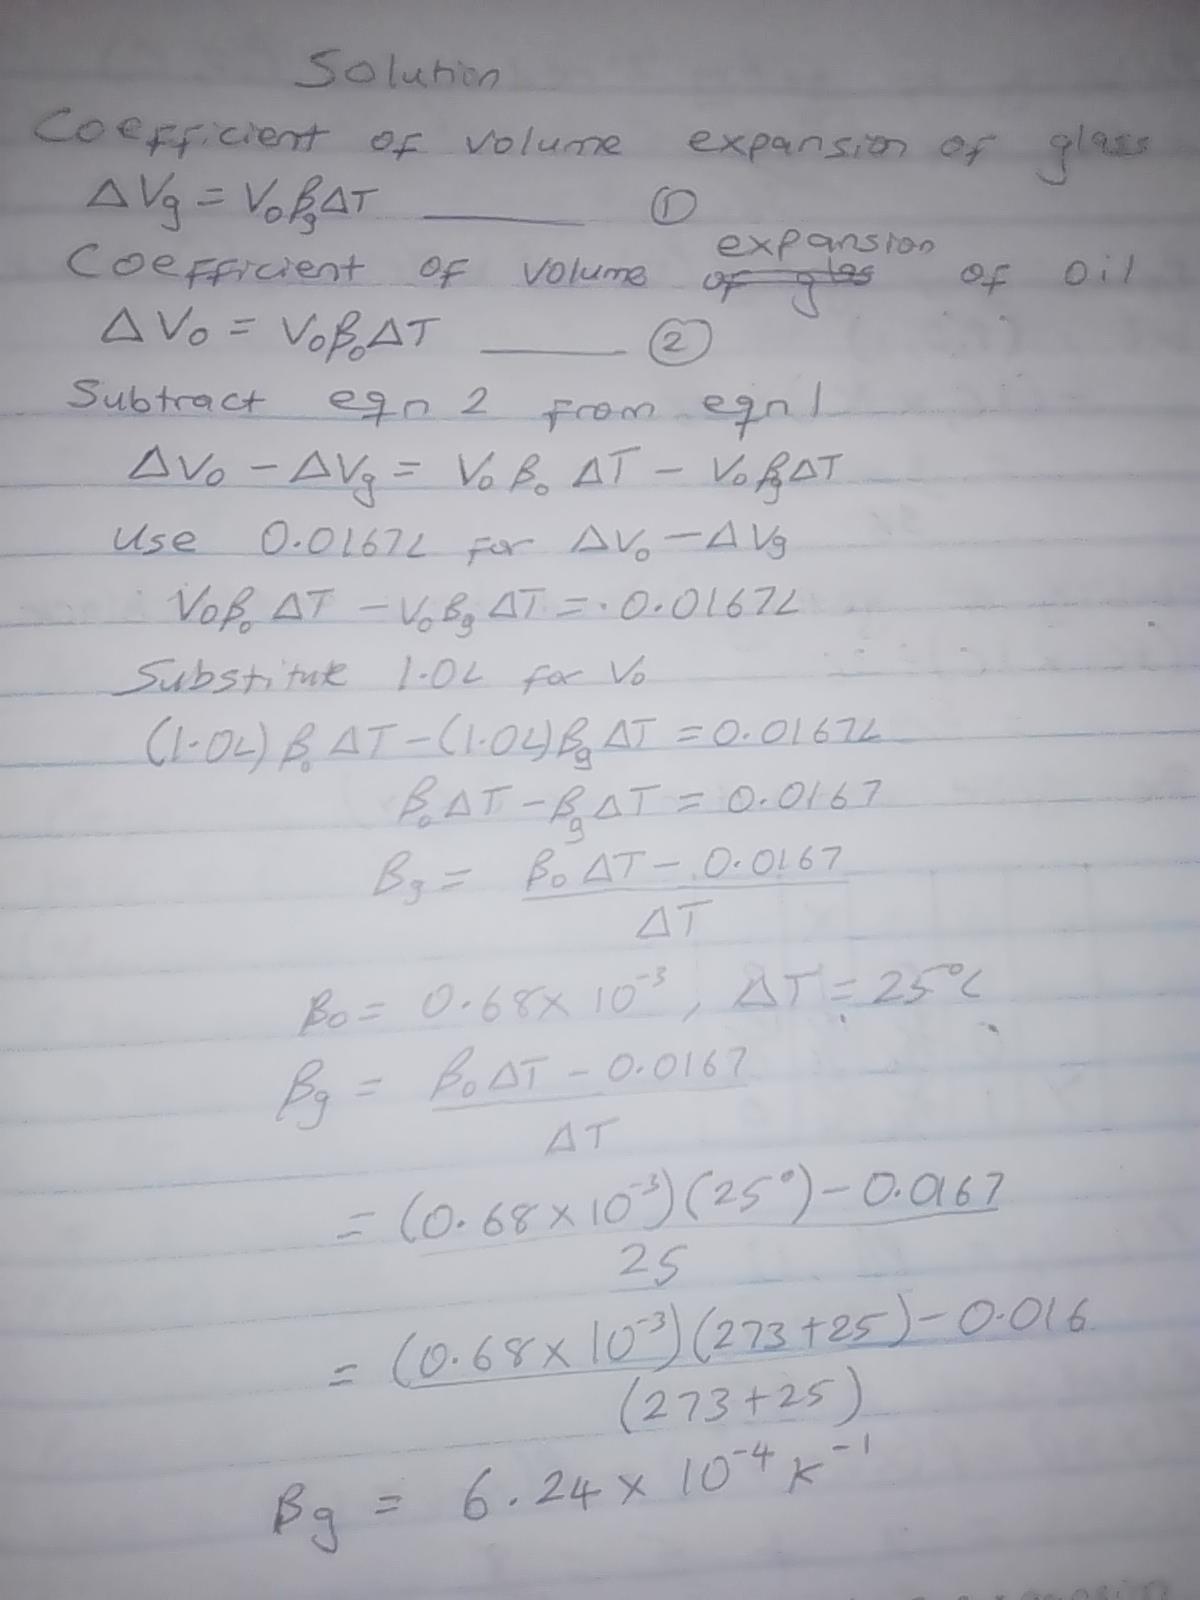 Solution
Coefficient of volume expansion of glass
ΔVg = V₀βgΔT ——— ①
Coefficient of volume expansion of oil
ΔV₀ = V₀β₀ΔT ——— ②
Subtract eqn 2 from eqn 1
ΔV₀ − ΔVg = V₀β₀ ΔT − V₀βgΔT
Use 0.0167L for ΔV₀ − ΔVg
V₀β₀ ΔT − V₀Bg ΔT = 0.0167L
Substitute 1.0L for V₀
(1.0L) β₀ ΔT − (1.0L)Bg ΔT = 0.0167L
β₀ ΔT − βg ΔT = 0.0167
Bg = β₀ ΔT − 0.0167
ΔT
β₀ = 0.68 × 10⁻³, ΔT = 25°C
βg = β₀ ΔT − 0.0167
ΔT
= (0.68 × 10⁻³)(25°) − 0.0167
25
= (0.68 × 10⁻³)(273+25) − 0.016
(273+25)
Bg = 6.24 × 10⁻⁴ K⁻¹